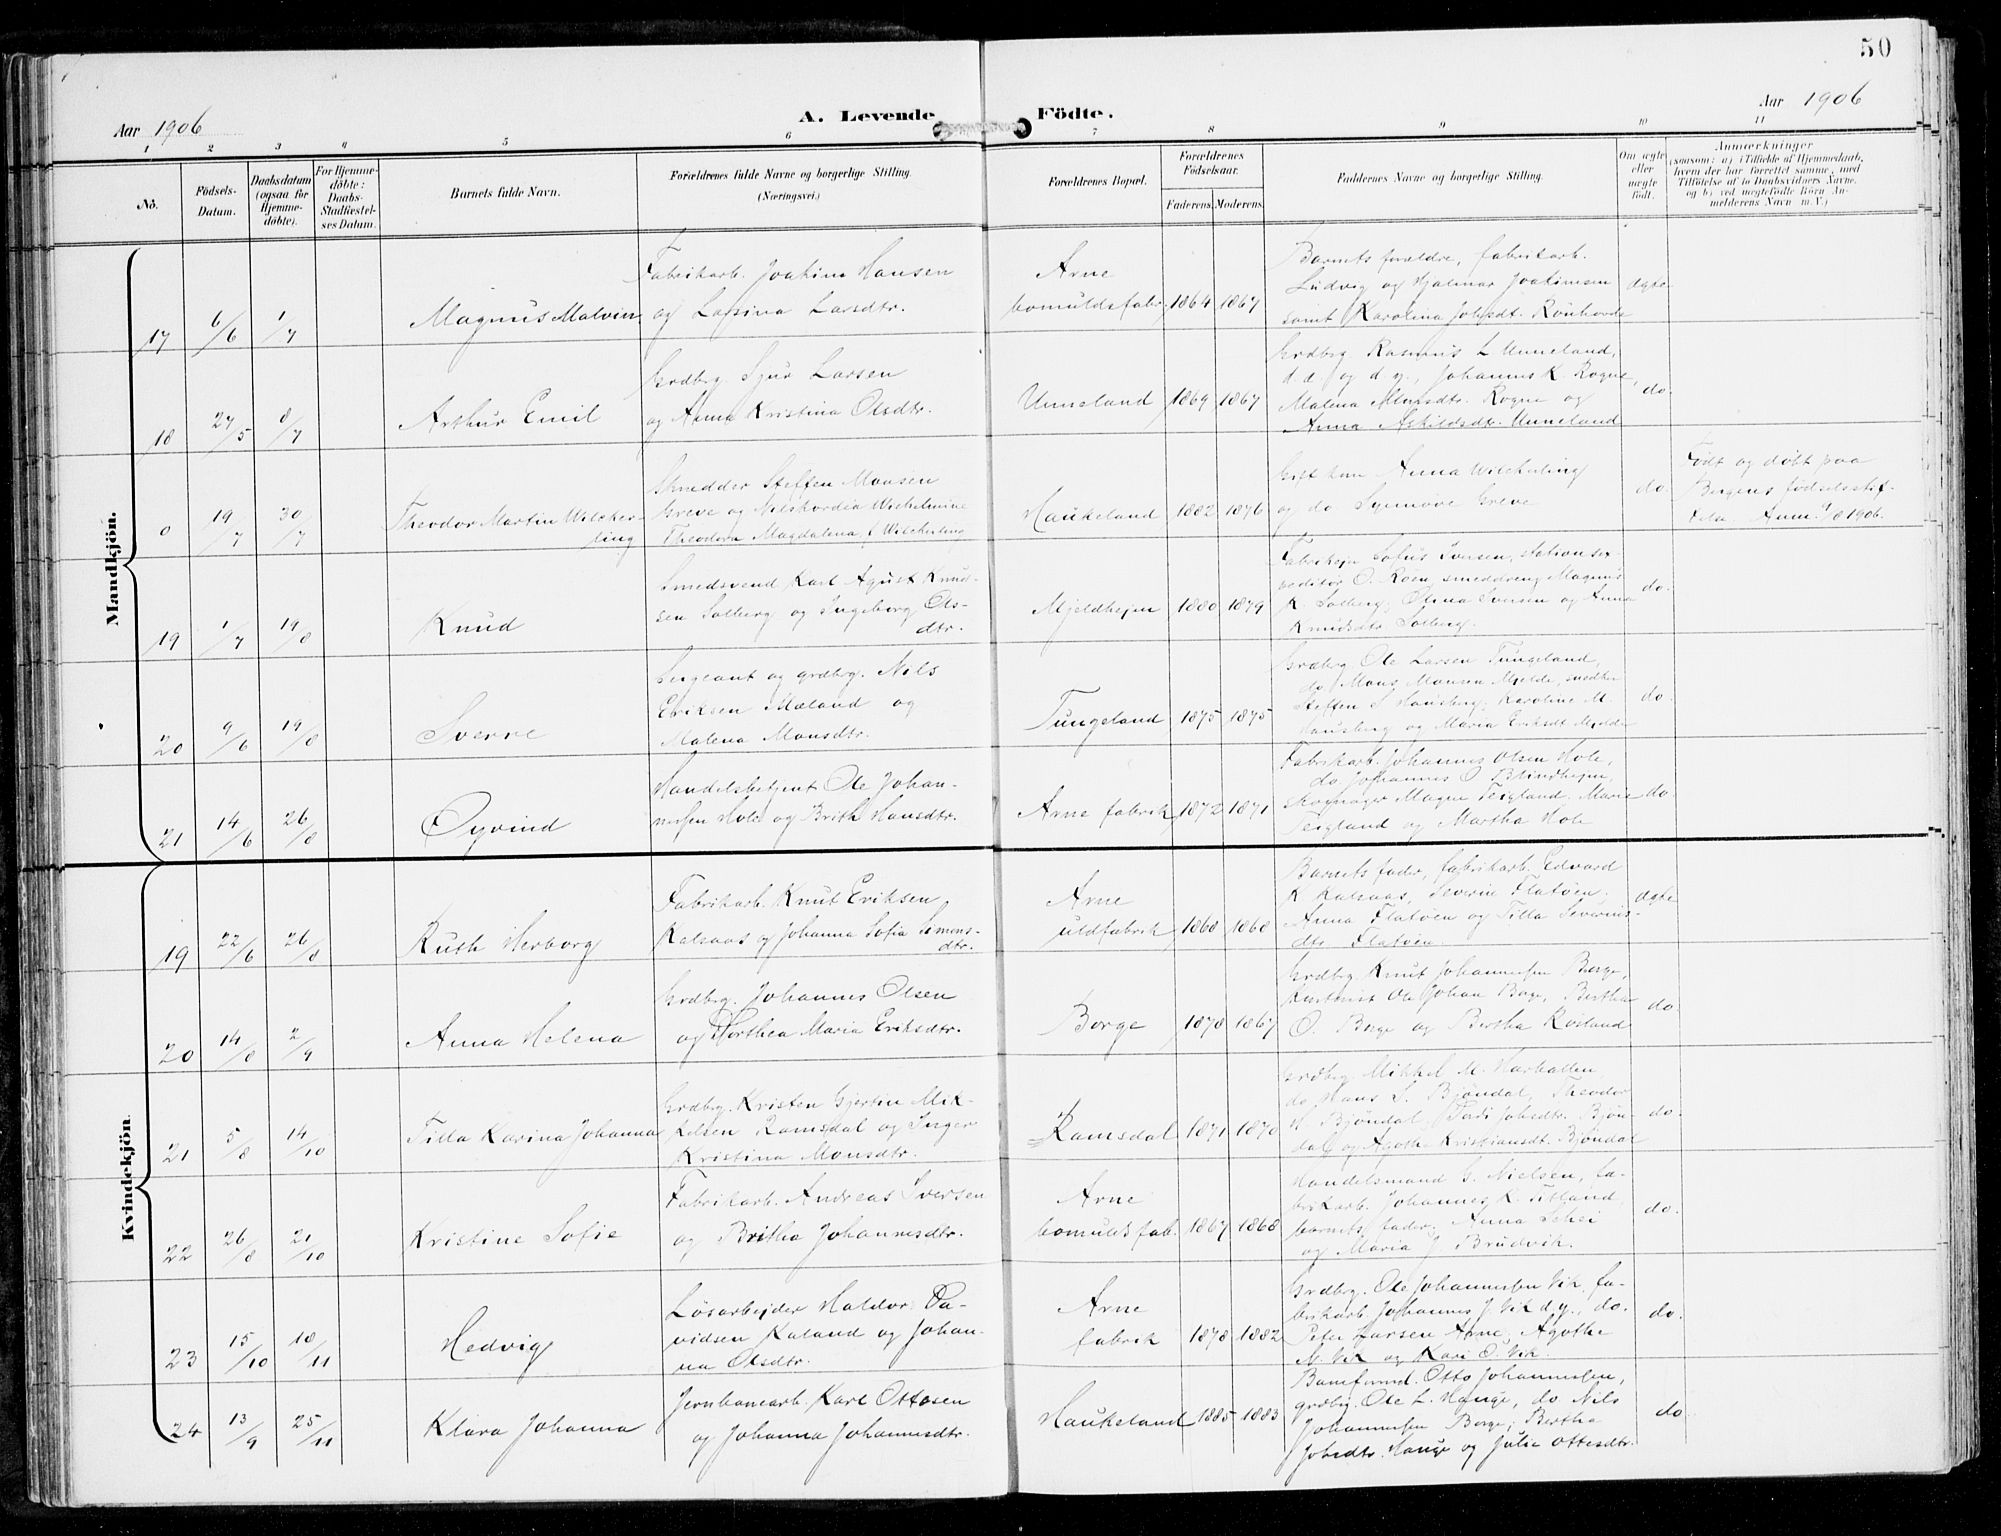 50
Aar 1906
A. Levende Födte.
Aar 1906
1 2 3 4 5 6 7 8 9 10 11
No.
Födsels-Datum.
Daabsdatum (ogsaa for Hjemme-döbte).
For Hjemme-döbte: Daabs-Stadfæstel-ses Datum.
Barnets fulde Navn.
Forældrenes fulde Navne og borgerlige Stilling.
(Næringsvei.)
Forældrenes Bopæl.
Forældrenes Födselsaar.
Faderens. Moderens.
Faddernes Navne og borgerlige Stilling.
Om ægte eller uægte födt.
Anmærkninger
(saasom: a) i Tilfælde af Hjemmedaab, hvem der har forrettet samme, med Tilföielse af to Daabsvidners Navne, og b) ved uægtefödte Börn An-melderens Navn m. V.)
Mandkjön.
17 6/6 1/7 Magnus Malvin
Fabrikarb. Joakim Hansen
og Larsina Larsdtr.
Arne
bomuldsfabr. 1864 1867
Barnets forældre, fabrikarb.
Ludvig og Hjalmar Joakimsen
samt Karolina Johsdt. Rönhovde
ægte
18 27/5 8/7 Arthur Emil
Grdbrg. Sjur Larsen
og Anna Kristina Olsdtr.
Unneland 1869 1867
Grdbrg Rasmus L Unneland,
d æ og d y., Johannes K. Rogne,
Malena Monsdtr. Rogne og
Anna Askildsdtr. Unneland
do.
0 19/7 30/7 Theodor Martin Wilcher-
ling
Skrædder Steffen Monsen
Greve og Nilskordia Wilhelmine
Theodora Magdalena f Wilcherling
Haukeland 1882 1876
Gift kone Anna Wilcherling
og do Synnöve Greve
do.
Födt og döbt paa
Bergens födselsstif-
telse. Anm. 9/8 1906.
19 1/7 19/8 Knud
Smedsvend Karl Agust Knud-
sen Solberg og Ingeborg Ols-
dtr.
Mjeldhejen 1880 1879
Fabrikejer Sofus Iversen, stationsex
peditör O. Roen, smeddreng Magnus
K. Solberg, Olina Iversen og Anna
Knudsdtr. Solberg.
do.
20 9/6 19/8 Sverre
Sergeant og grdbrg. Nils
Eriksen Mæland og
Malena Monsdtr.
Tungeland 1875 1875
Grdbrg Ole Larsen Tungeland,
do Mons Monsen Mjelde, snedker
Steffen S. Hausberg, Karoline M.
Hausberg og Maria Eriksdt Mjelde
do.
21 14/6 26/8 Öyvind
Handelsbetjent Ole Johan-
nessen Hole og Brith Hansdtr.
Arne fabrik 1872 1871
Fabrikarb. Johannes Olsen Hole,
do Johannes O Blindhejm,
skomager Magne Teigland. Marie
Teigland og Martha Hole
do.
Kvindekjön
19 22/6 26/8 Ruth Herborg
Fabrikarb. Knut Eriksen
Kalsaas og Johanna Sofia Simons-
dtr.
Arne
uldfabrik 1868 1868
Barnets fader, fabrikarb. Edvard
K Kalsaas, Severin Flatöen.
Anna Flatöen og Tilla Severins-
dtr Flatöen.
ægte
20 14/8 2/9 Anna Helena
Grdbrg. Johannes Olsen
og Dorthea Maria Eriksdtr.
Borge 1878 1867
Grdbrg. Knut Johannessen Borge,
Ole Johan Borge, Bertha
O. Borge og Bertha Röiland
do.
21 5/8 14/10 Tilla Karina Johanna
Grdbrg. Kristen Gjertin Mik-
kelsen Ramsdal og Inger
Kristina Monsdtr.
Ramsdal 1871 1870
Grdbrg Mikkel M. Harkallen
do Hans S. Bjöndal, Theodor
H. Bjöndal, Jordi Johsdtr. Bjön
dal og Agothe Kristiansdt. Bjöndal
do.
22 26/8 21/10 Kristine Sofie
Fabrikarb. Andreas Iversen
og Britha Johannesdtr.
Arne
bomuldsfab. 1867 1868
Handelsmand G. Nielsen, fa-
brikarb. Johannes K. Titland,
barnets fader, Anna Schei
og Maria J Brudvik.
do.
23 15/10 18/11 Hedvig
Lösarbejder Haldor Da-
vidsen Kaland og Johan-
na Olsdtr.
Arne
fabrik 1878 1882
Grdbrg. Ole Johannessen Vik, fa-
brikarb. Johannes J Vik d.y., do.
Peter Larsen Arne, Agothe
N. Vik og Kari O. Vik.
do.
24 13/9 25/11 Klara Johanna
Jernbanearb. Karl Ottosen
og Johanna Johannesdtr.
Haukeland 1885 1883
Baneformd. Otto Johannessen,
grdbrg. Ole L. Hauge, do Nils
Johannessen Borge; Bertha
Johsdtr. Hauge og Julie Ottesdtr.
do